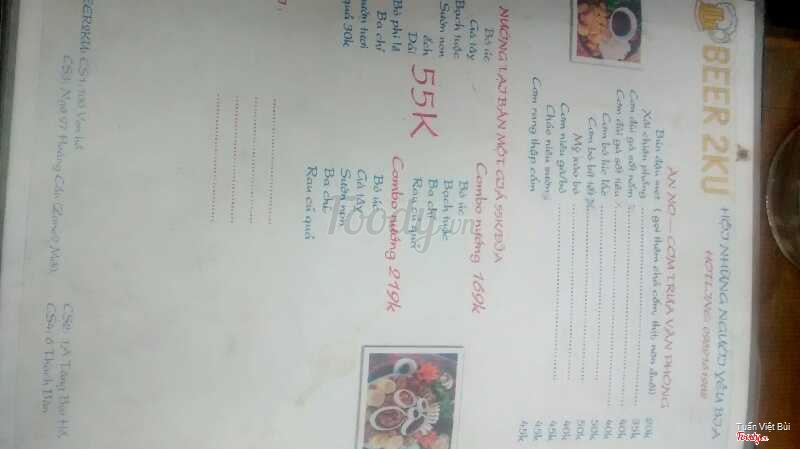 BEER 2KU
HỘI NHỮNG NGƯỜI YÊU BIA
HOTLINE:
ĂN NO - CƠM TRƯA VĂN PHÒNG
Bún đậu mẹt ( gọi thêm chả cốm, thịt, nem
20k
Xôi chiên phồng
35k
Cơm đùi gà sốt nấm
40k
Cơm đùi gà sốt tiêu
40k
Cơm bò lúc lắc
50k
Cơm bò bít tết
50k
Mỳ xào bò
40k
Cơm niêu gà/bò
45k
Cháo niêu sườn
45k
Cơm rang thập cẩm
45k
NƯỚNG TẠI BÀN MỘT GIÁ 55K/ĐĨA
Bò úc
Gà tây
Bạch tuộc
Sườn non
Ếch
Dải
Bò phi lê
Ba chỉ
55K
Combo nướng 169k
Bò úc
Bạch tuộc
Ba chỉ
Rau củ quả
Combo nướng 219k
Bò úc
Gà tây
Sườn non
Ba chỉ
Rau củ quả
CS1: 100 Vân hồ
CS2: 1A Tăng Bạt Hổ
CS3: Ngõ 97 Hoàng Cầu
CS4: 6 Thạch Bàn
Foody.vn
Tuấn Việt Bùi
Foody.vn